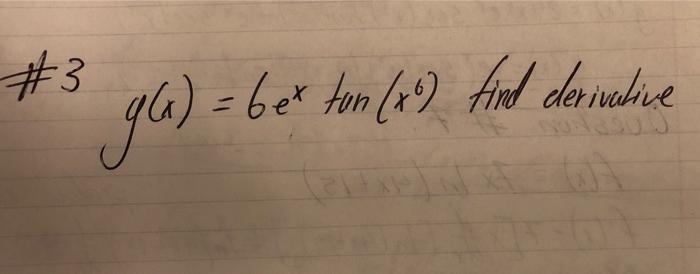 #3
g(x) = 6e^x tan(x^6) find derivative